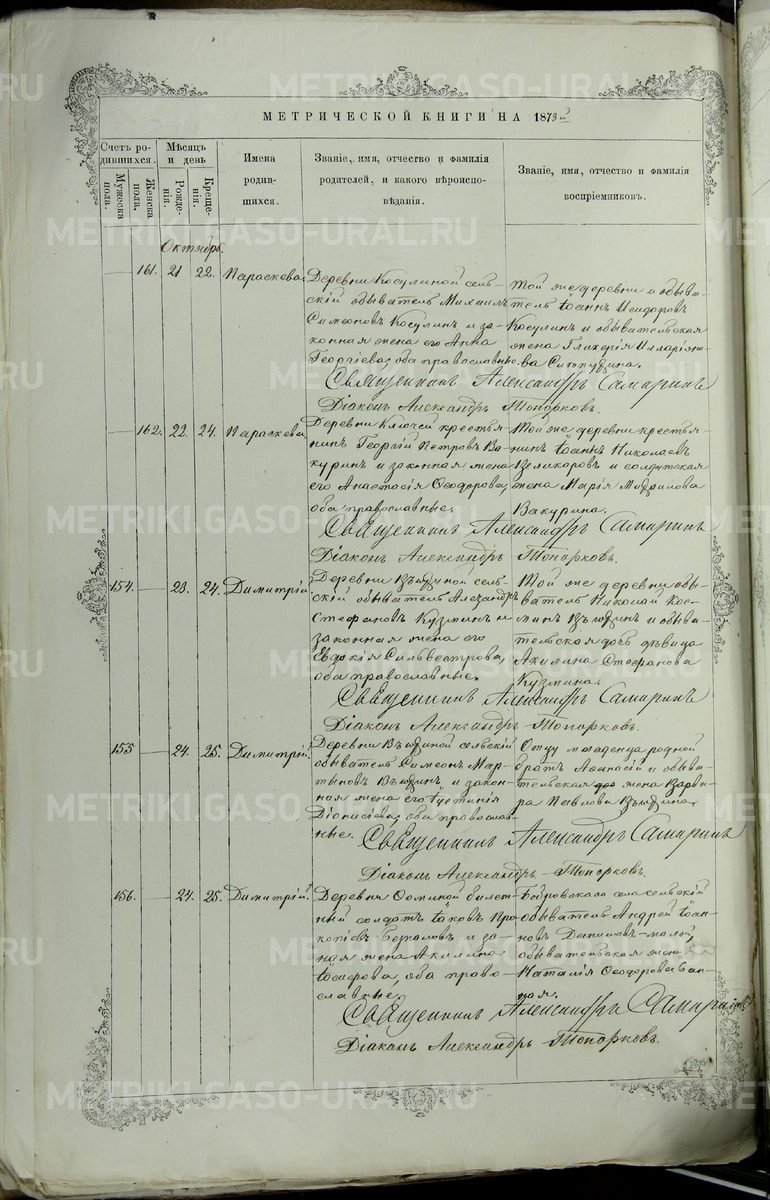 МЕТРИЧЕСКОЙ КНИГИ НА 1873й
Счетъ ро-
дившихся.
Мужеска
пола.
Женска
пола.
Мѣсяцъ
и день
Рожде-
нія.
Креще-
нія.
Имена
родив-
шихся.
Званіе, имя, отчество и фамилія
родителей, и какого вѣроиспо-
вѣданія.
Званіе, имя, отчество и фамилія
воспріемниковъ.
Октябрь.
161. 21 22. Параскева
Деревни Косулиной сель-
скій обыватель Михаилъ
Симеоновъ Косулинъ и за-
конная жена его Анна
Георгіева, оба православные
Той же деревни обыва-
тель Іоаннъ Исидоровъ
Косулинъ и обывательская
жена Гликерія Илларіоно-
ва
Священникъ Александръ Самаринъ
Діаконъ Александръ Топорковъ.
162. 22. 24. Параскева
Деревни Ключей крестья-
нинъ Георгій Петровъ Ва-
куринъ и законная жена
его Анастасія Ѳеодорова,
оба православные.
Той же деревни крестья-
нинъ Іоаннъ Николаевъ
и солдатская
жена Марія
Вакурина.
Священникъ Александръ Самаринъ
Діаконъ Александръ Топорковъ.
154. 23. 24. Димитрій
Деревни сель-
скій обыватель Алезандръ
Стефановъ Кузминъ и
законная жена его
Евдокія Сильвестрова,
оба православные.
Той же деревни обы-
ватель Николай Кос-
минъ и обыва-
тельская дочь дѣвица
Акилина Стефанова
Кузмина.
Священникъ Александръ Самаринъ
Діаконъ Александръ Топорковъ.
155 24. 25. Димитрій
Деревни сельскій
обыватель Симеонъ Мар-
тыновъ и закон-
ная жена его Іустинія
Діонисіева, оба православ-
ные.
Отцу младенца родной
братъ Аѳанасій и обыва-
тельская жена Варва-
ра Павлова
Священникъ Александръ Самаринъ
Діаконъ Александръ Топорковъ.
156. 24. 25. Димитрій.
Деревни билет-
ный солдатъ Іаковъ Про-
копіевъ и за-
ная жена Акилина
Іосифова, оба право-
славные.
Бобровскаго села сельскій
обыватель Андрей Іоан-
новъ Даниловъ-малой,
обывательская жена
Наталія Ѳеодорова
Священникъ Александръ Самаринъ
Діаконъ Александръ Топорковъ.
METRIKI.GASO-URAL.RU